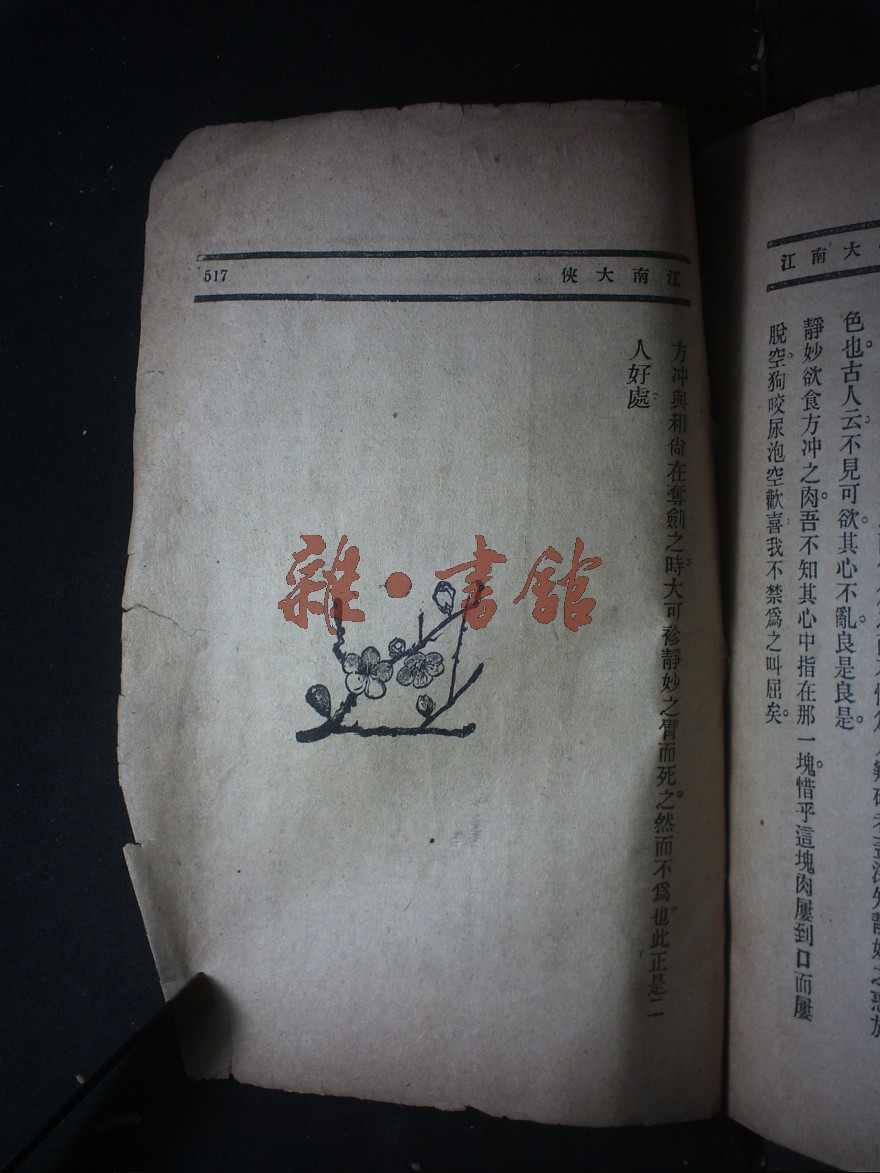 江南大
色也。古人云。不見可欲。其心不亂。良是良是。
靜妙欲食方冲之肉。吾不知其心中指在那一塊。惜乎這塊肉屢到口而屢
脫空。狗咬尿泡空歡喜。我不禁爲之叫屈矣。
江南大俠
517
方冲與和尙在奪劍之時。大可紾靜妙之臂而死之。然而不爲也。此正是二
人好處。
雜·書舘